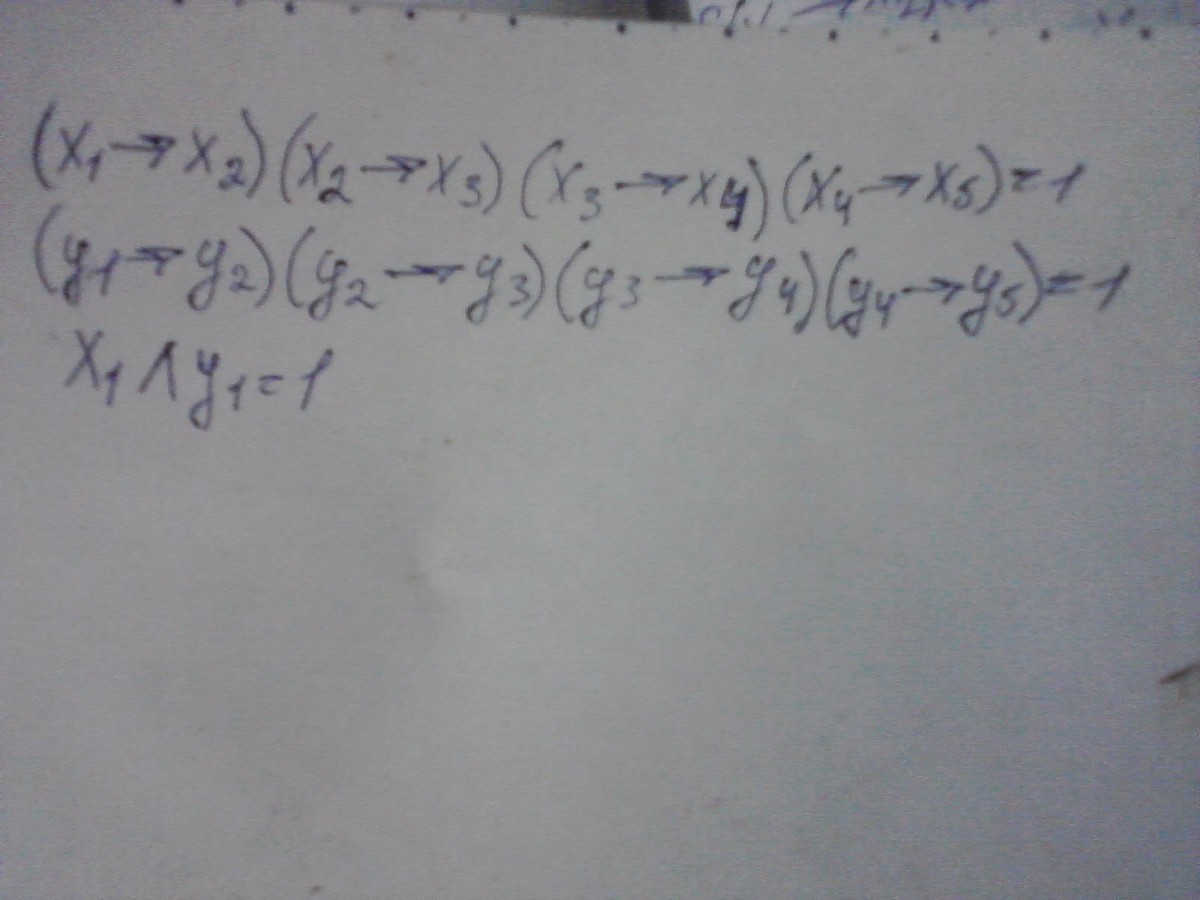 (x₁→x₂)(x₂→x₃)(x₃→x₄)(x₄→x₅)=1
(y₁→y₂)(y₂→y₃)(y₃→y₄)(y₄→y₅)=1
x₁∧y₁=1